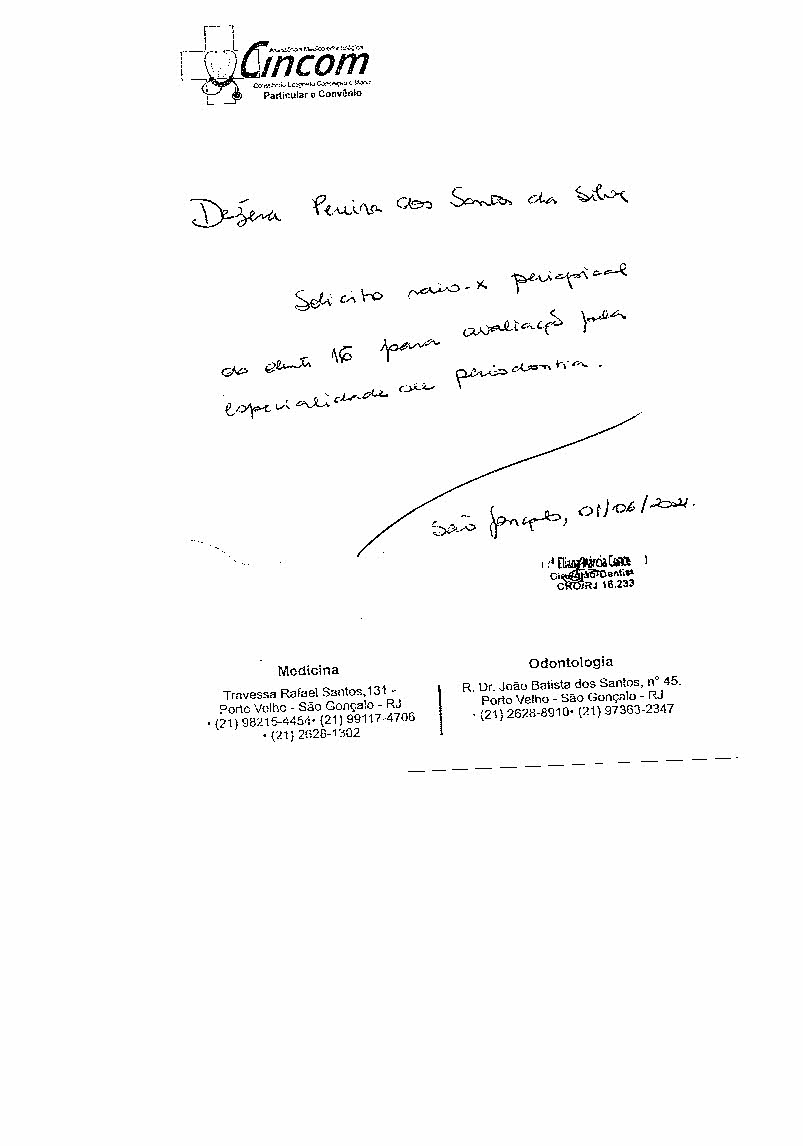 Cincom
Particular e Convênio
Pereira dos Santos da Silva
Solicito raio-x periapical
do elemento 16 para avaliação pela
especialidade de periodontia.
São Gonçalo, 01/06/2021.
Cirurgião-Dentista
CRO/RJ 16.233
Medicina
Travessa Rafael Santos,131 -
Porto Velho - São Gonçalo - RJ
• (21) 98215-4454• (21) 99117-4706
• (21) 2628-1302
Odontologia
R. Dr. João Batista dos Santos, n° 45.
Porto Velho - São Gonçalo - RJ
• (21) 2628-8910• (21) 97363-2347